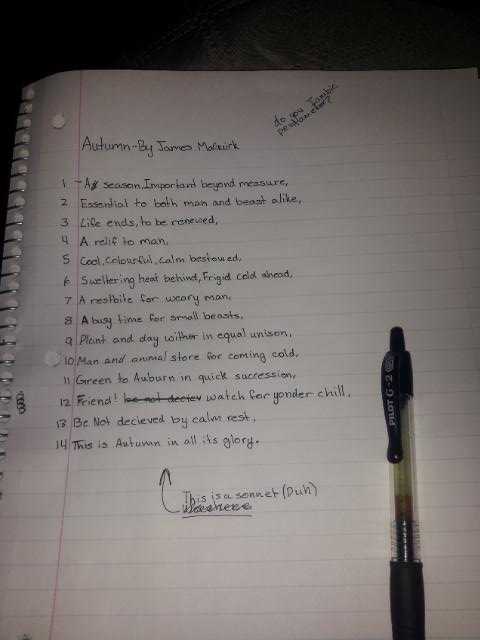 do you Iambic
pentameter?
Autumn-By James McGuirk
1 -A season, Important beyond measure,
2 Essential to both man and beast alike,
3 Life ends, to be renewed,
4 A relif to man,
5 Cool, Colourful, Calm bestowed,
6 Sweltering heat behind, Frigid cold ahead,
7 A restbite for weary man,
8 A busy time for small beasts,
9 Plant and day wither in equal unison,
10 Man and animal store for coming cold,
11 Green to Auburn in quick succession,
12 Friend! be not deciev watch for yonder chill,
13 Be Not decieved by calm rest,
14 This is Autumn in all its glory.
This is a sonnet (Duh)
PILOT G-2